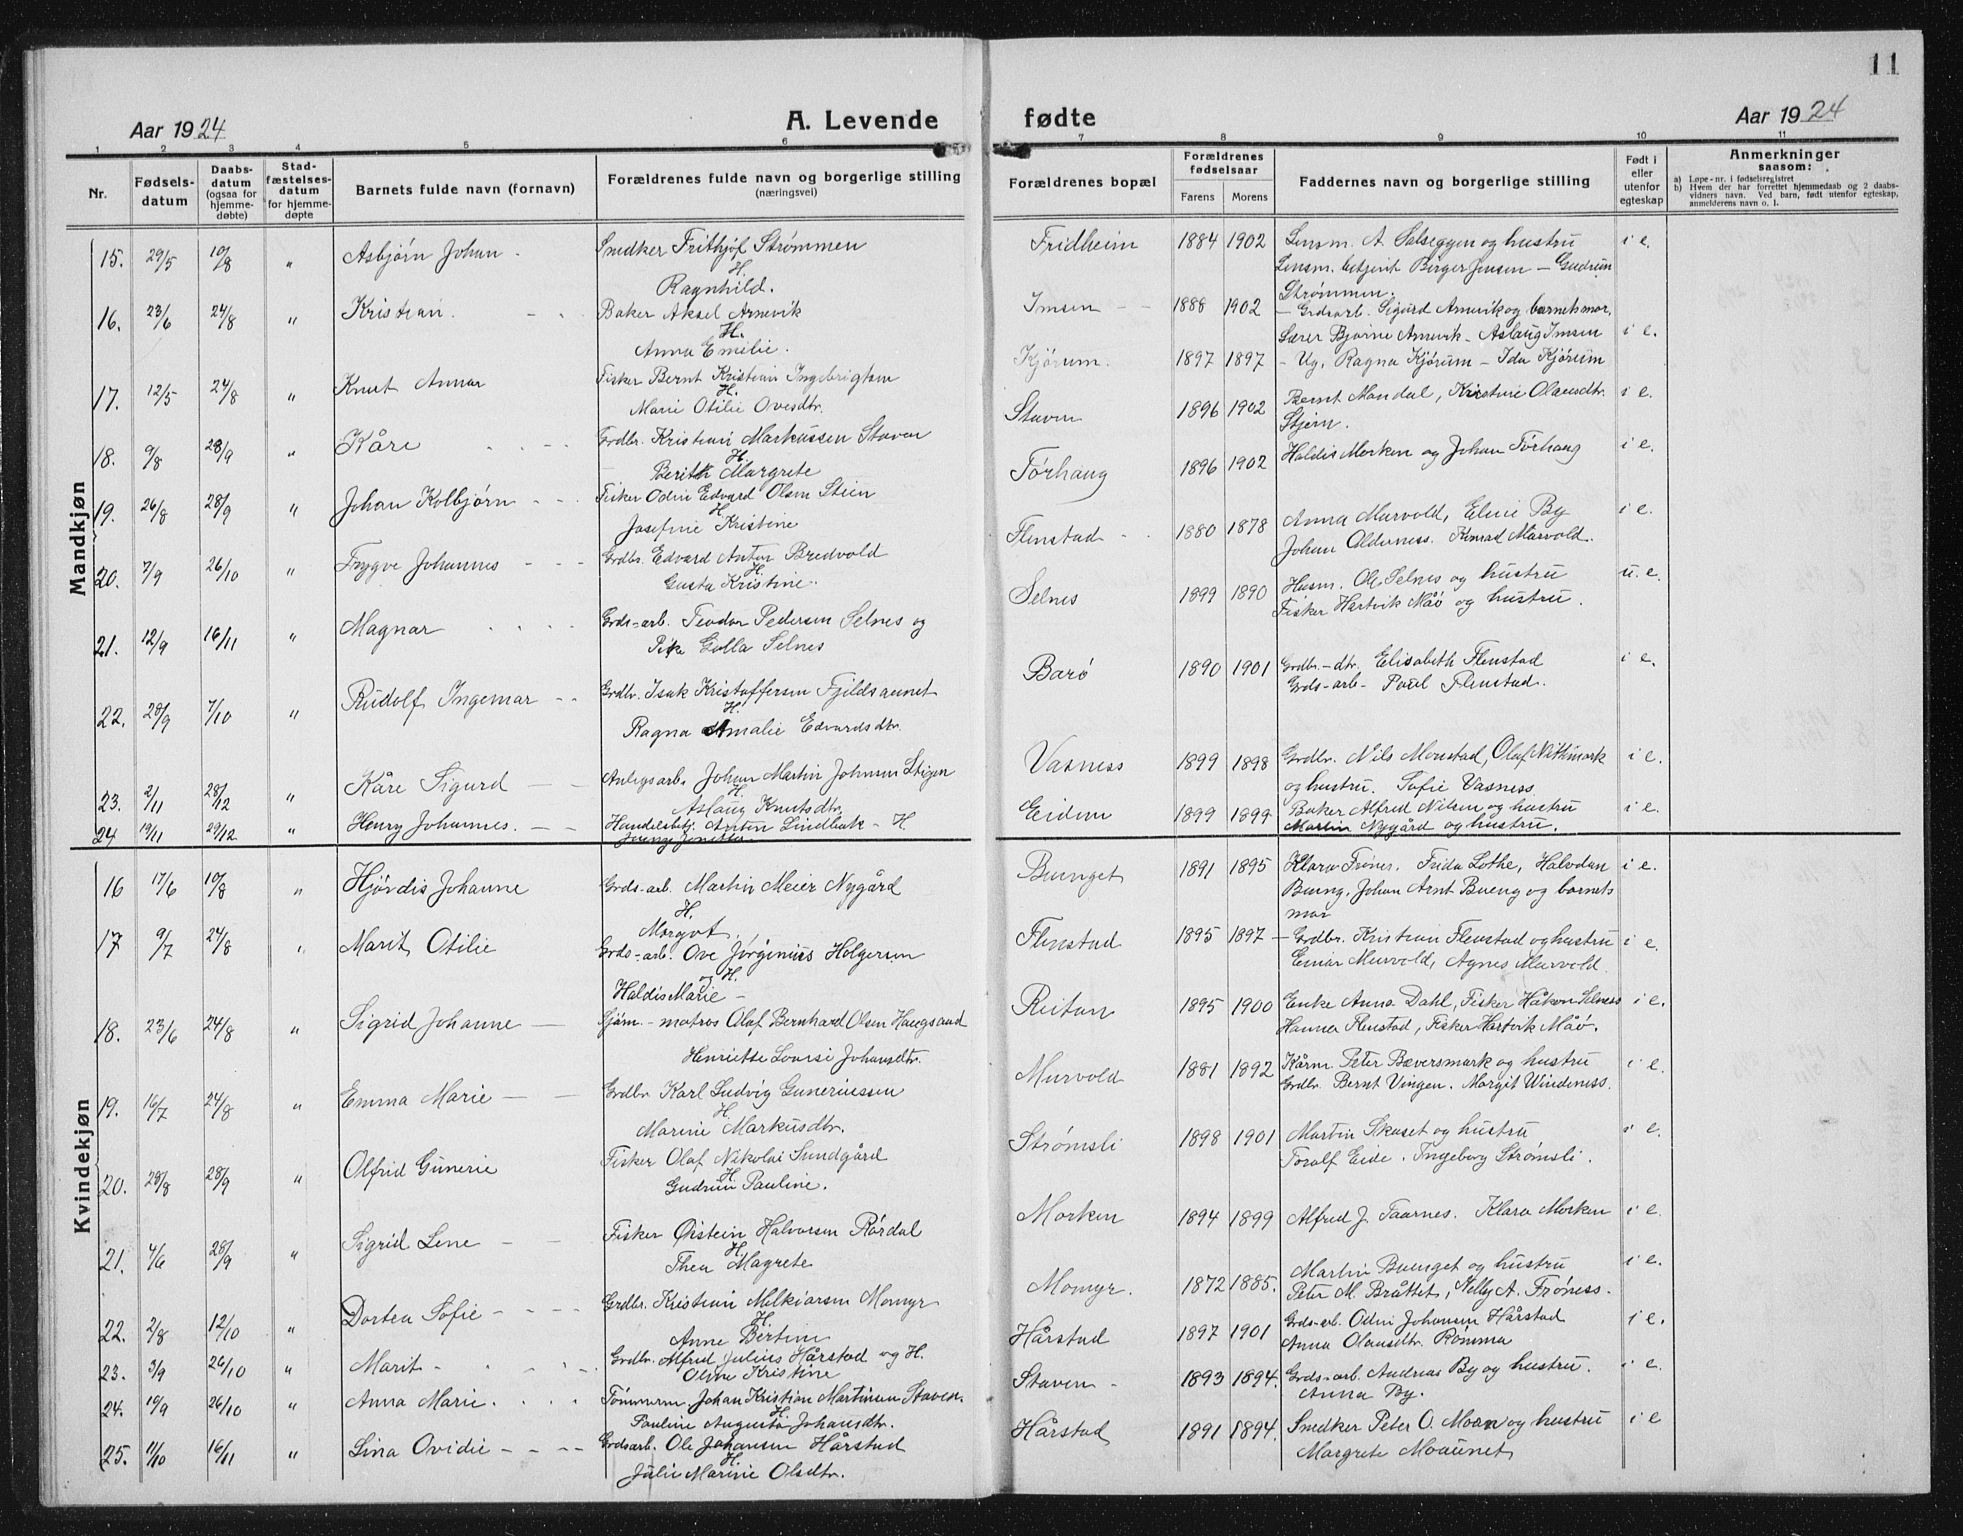 11
Aar 1924
A. Levende fødte
Aar 1924
1 2 3 4 5 6 7 8 9 10 11
Nr. | Fødselsdatum | Daabsdatum (ogsaa for hjemmedøbte) | Stadfæstelsesdatum for hjemmedøpte | Barnets fulde navn (fornavn) | Forældrenes fulde navn og borgerlige stilling (næringsvei) | Forældrenes bopæl | Forældrenes fødselsaar Farens Morens | Faddernes navn og borgerlige stilling | Født i eller utenfor egteskap | Anmerkninger saasom: a) Løpe-nr. i fødselsregistret b) Hvem der har forrettet hjemmedaab og 2 daabsvidners navn. Ved barn, født utenfor egteskap, anmelderens navn o. l.
Mandkjøn
15. 29/5 10/8 " Asbjørn Johan Smedker Frithjof Strømmen H. Ragnhild. Fridheim 1884 1902 Lensm. A. Salseggen og hustru Lensm. betjent Birger Jensen – Gudrun Strømmen. i e.
16. 23/6 24/8 " Kristian. Baker Aksel Arnevik H. Anna Emelie. Imsen 1888 1902 – Grdsarb. Sigurd Arnevik og barnets mor, Lærer Bjarne Arnevik – Aslaug Imsen i e.
17. 12/5 24/8 " Knut Annar Fisker Bernt Kristian Ingebrigtsen H. Marie Otilie Ovesdtr. Kjørum. 1897 1897 – Ug. Ragna Kjørum – Ida Kjørum
18. 9/8 28/9 " Kåre Grdbr. Kristian Markussen Staven H. Berith Margrete Staven 1896 1902 Bernt Mandal, Kristine Olausdtr. Stjern. i e.
19. 26/8 28/9 " Johan Kolbjørn Fisker Odin Edvard Olsen Stien H. Josefine Kristine Tørhaug 1896 1902 Haldis Morken og Johan Tørhaug i e.
20. 7/9 26/10 " Trygve Johannes Grdbr. Edvard Anton Bredvold H. Gusta Kristine. Flenstad 1880 1878 Anna Murvold, Eline By Johan Olderness. Konrad Murvold. i e.
21. 12/9 16/11 " Magnar Grds-arb. Teodor Pedersen Selnes og Pike Golla Selnes Selnes 1899 1890 Husm. Ole Selnes og hustru Fisker Hartvik Måø og hustru. u. e.
22. 28/9 7/10 " Rudolf Ingemar Grdbr. Isak Kristoffersen Fjeldsaunet H. Ragna Amalie Edvardsdtr. Barø 1890 1901 Grdbr.-dtr. Elisabeth Flenstad Grds-arb- Poul Flenstad. i e.
23. 2/11 28/12 " Kåre Sigurd Anlegsarb. Johan Martin Johnsen Stigen H. Aslaug Knutsdtr. Vasness 1899 1898 Grdbr. Nils Monstad, Olaf Nøthmark og hustru. Sofie Vasness i e.
24 19/11 29/12 " Henry Johannes. Handelsbetj. Anton Lindbak – H. Jenny Jonetta Eidem 1899 1899 Baker Alfred Nilsen og hustru Martin Nygård og hustru. i e.
Kvindekjøn
16 17/6 10/8 " Hjørdis Johanne Grds-arb. Martin Meier Nygård H. Margot. Buenget 1891 1895 Klara Frønes. Frida Lothe, Halvdan Bueng, Johan Arnt Bueng og barnets mor i e.
17 9/7 24/8 " Marit Otilie Grds-arb. Ove Jørginius Holgersen og H. Haldis Marie – Flenstad 1895 1897 – Grdbr. Kristian Flenstad og hustru Einar Murvold, Agnes Murvold. i e.
18. 23/6 24/8 " Sigrid Johanne Sjøm. – matros Olaf Bernhard Olsen Haugsand Henriette Lovise Johansdtr. Reitan 1895 1900 Enke Anna Dahl, Fisker Håkon Selness Hanna Flenstad, Fisker Hartvik Måø. i e.
19. 16/7 24/8 " Emma Marie Grdbr Karl Ludvig Guneriussen H. Marine Markusdtr. Murvold 1881 1892 Kårm Peter Bæversmark og hustru Grdbr. Bernt Vingen. Margit Windeness. i e.
20. 28/8 28/9 " Olfrid Gunerie Fisker Olaf Nikolai Sundgård H. Gudrun Pauline. Strømsli 1898 1901 Martin Skaset og hustru Toralf Eide. Ingeborg Strømsli. i e.
21. 4/6 28/9 " Sigrid Lene Fisker Øistein Halvorsen Rørdal H. Thea Magrete Morken 1894 1899 Alfred J. Taarnes. Klara Morken i e.
22. 2/8 12/10 " Dortea Sofie Grdbr. Kristian Melkiorsen Momyr H. Anne Bertine Momyr. 1872 1885. Martin Buenget og hustru Peter M. Bråttet, Nelly A. Frøness. i e.
23. 3/9 26/10 " Marit Grdbr. Alfred Julius Hårstad og H. Oline Kristine Hårstad 1897 1901 Grds-arb. Odin Johansen Hårstad Anna Olausdtr. Rømma i e.
24. 19/9 26/10 " Anna Marie. Tømmerm. Johan Kristian Martinsen Staven. H. Pauline Augusta Johansdtr. Staven 1893 1894. Grds-arb. Andreas By og hustru. Anna By. i e.
25. 11/10 16/11 " Lina Ovidie Grdsarb. Ole Johansen Hårstad H. Julie Marine Olsdtr. Hårstad 1891 1894. Smedker Peter O. Moan og hustru Margrete Moaunet i e